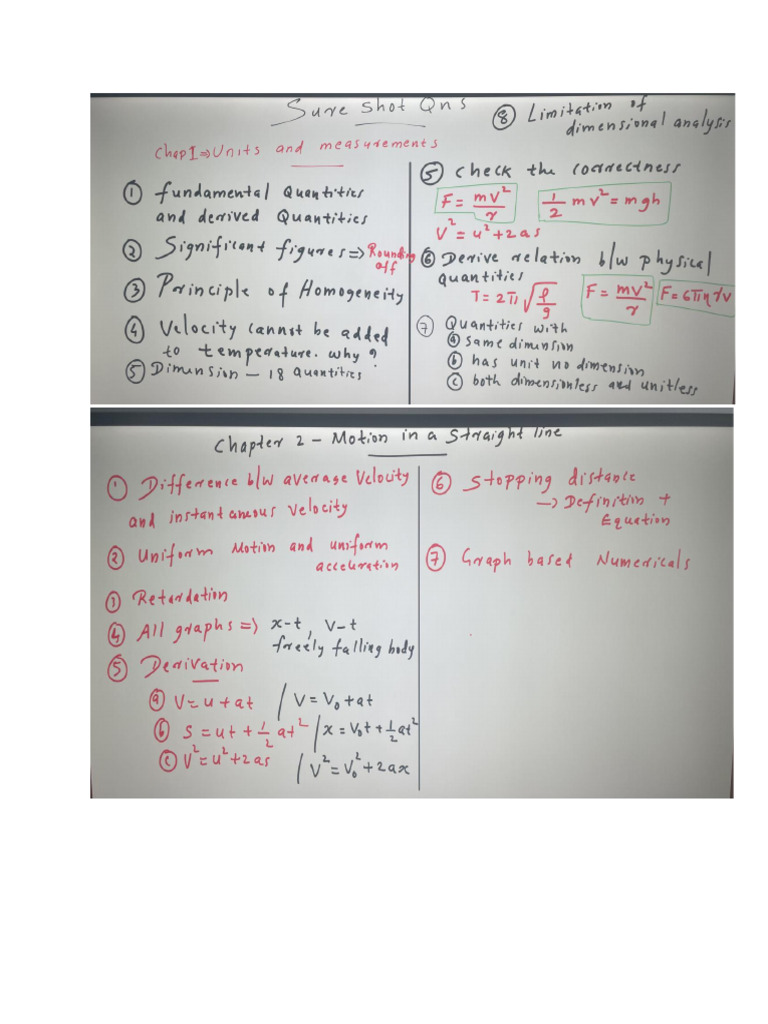 Sure Shot Qns
Chap I ⇒ Units and measurements
① Fundamental Quantities
and derived Quantities
② Significant figures => Rounding
off
③ Principle of Homogeneity
④ Velocity cannot be added
to temperature. why?
⑤ Dimension – 18 Quantities
⑧ Limitation of
dimensional analysis
⑤ Check the correctness
F = mv²/r   1/2 mv² = mgh
V² = u² + 2as
⑥ Derive relation b/w physical
quantities
T = 2π√(l/g)   F = mv²/r   F = 6πηrv
⑦ Quantities with
ⓐ same dimension
ⓑ has unit no dimension
ⓒ both dimensionless and unitless
Chapter 2 – Motion in a Straight line
① Difference b/w average Velocity
and instantaneous velocity
② Uniform Motion and uniform
acceleration
③ Retardation
④ All graphs => x-t, v-t
freely falling body
⑤ Derivation
ⓐ V = u + at / V = V₀ + at
ⓑ S = ut + 1/2 at² / x = V₀t + 1/2 at²
ⓒ V² = u² + 2as / V² = V₀² + 2ax
⑥ Stopping distance
→ Definition +
Equation
⑦ Graph based Numericals